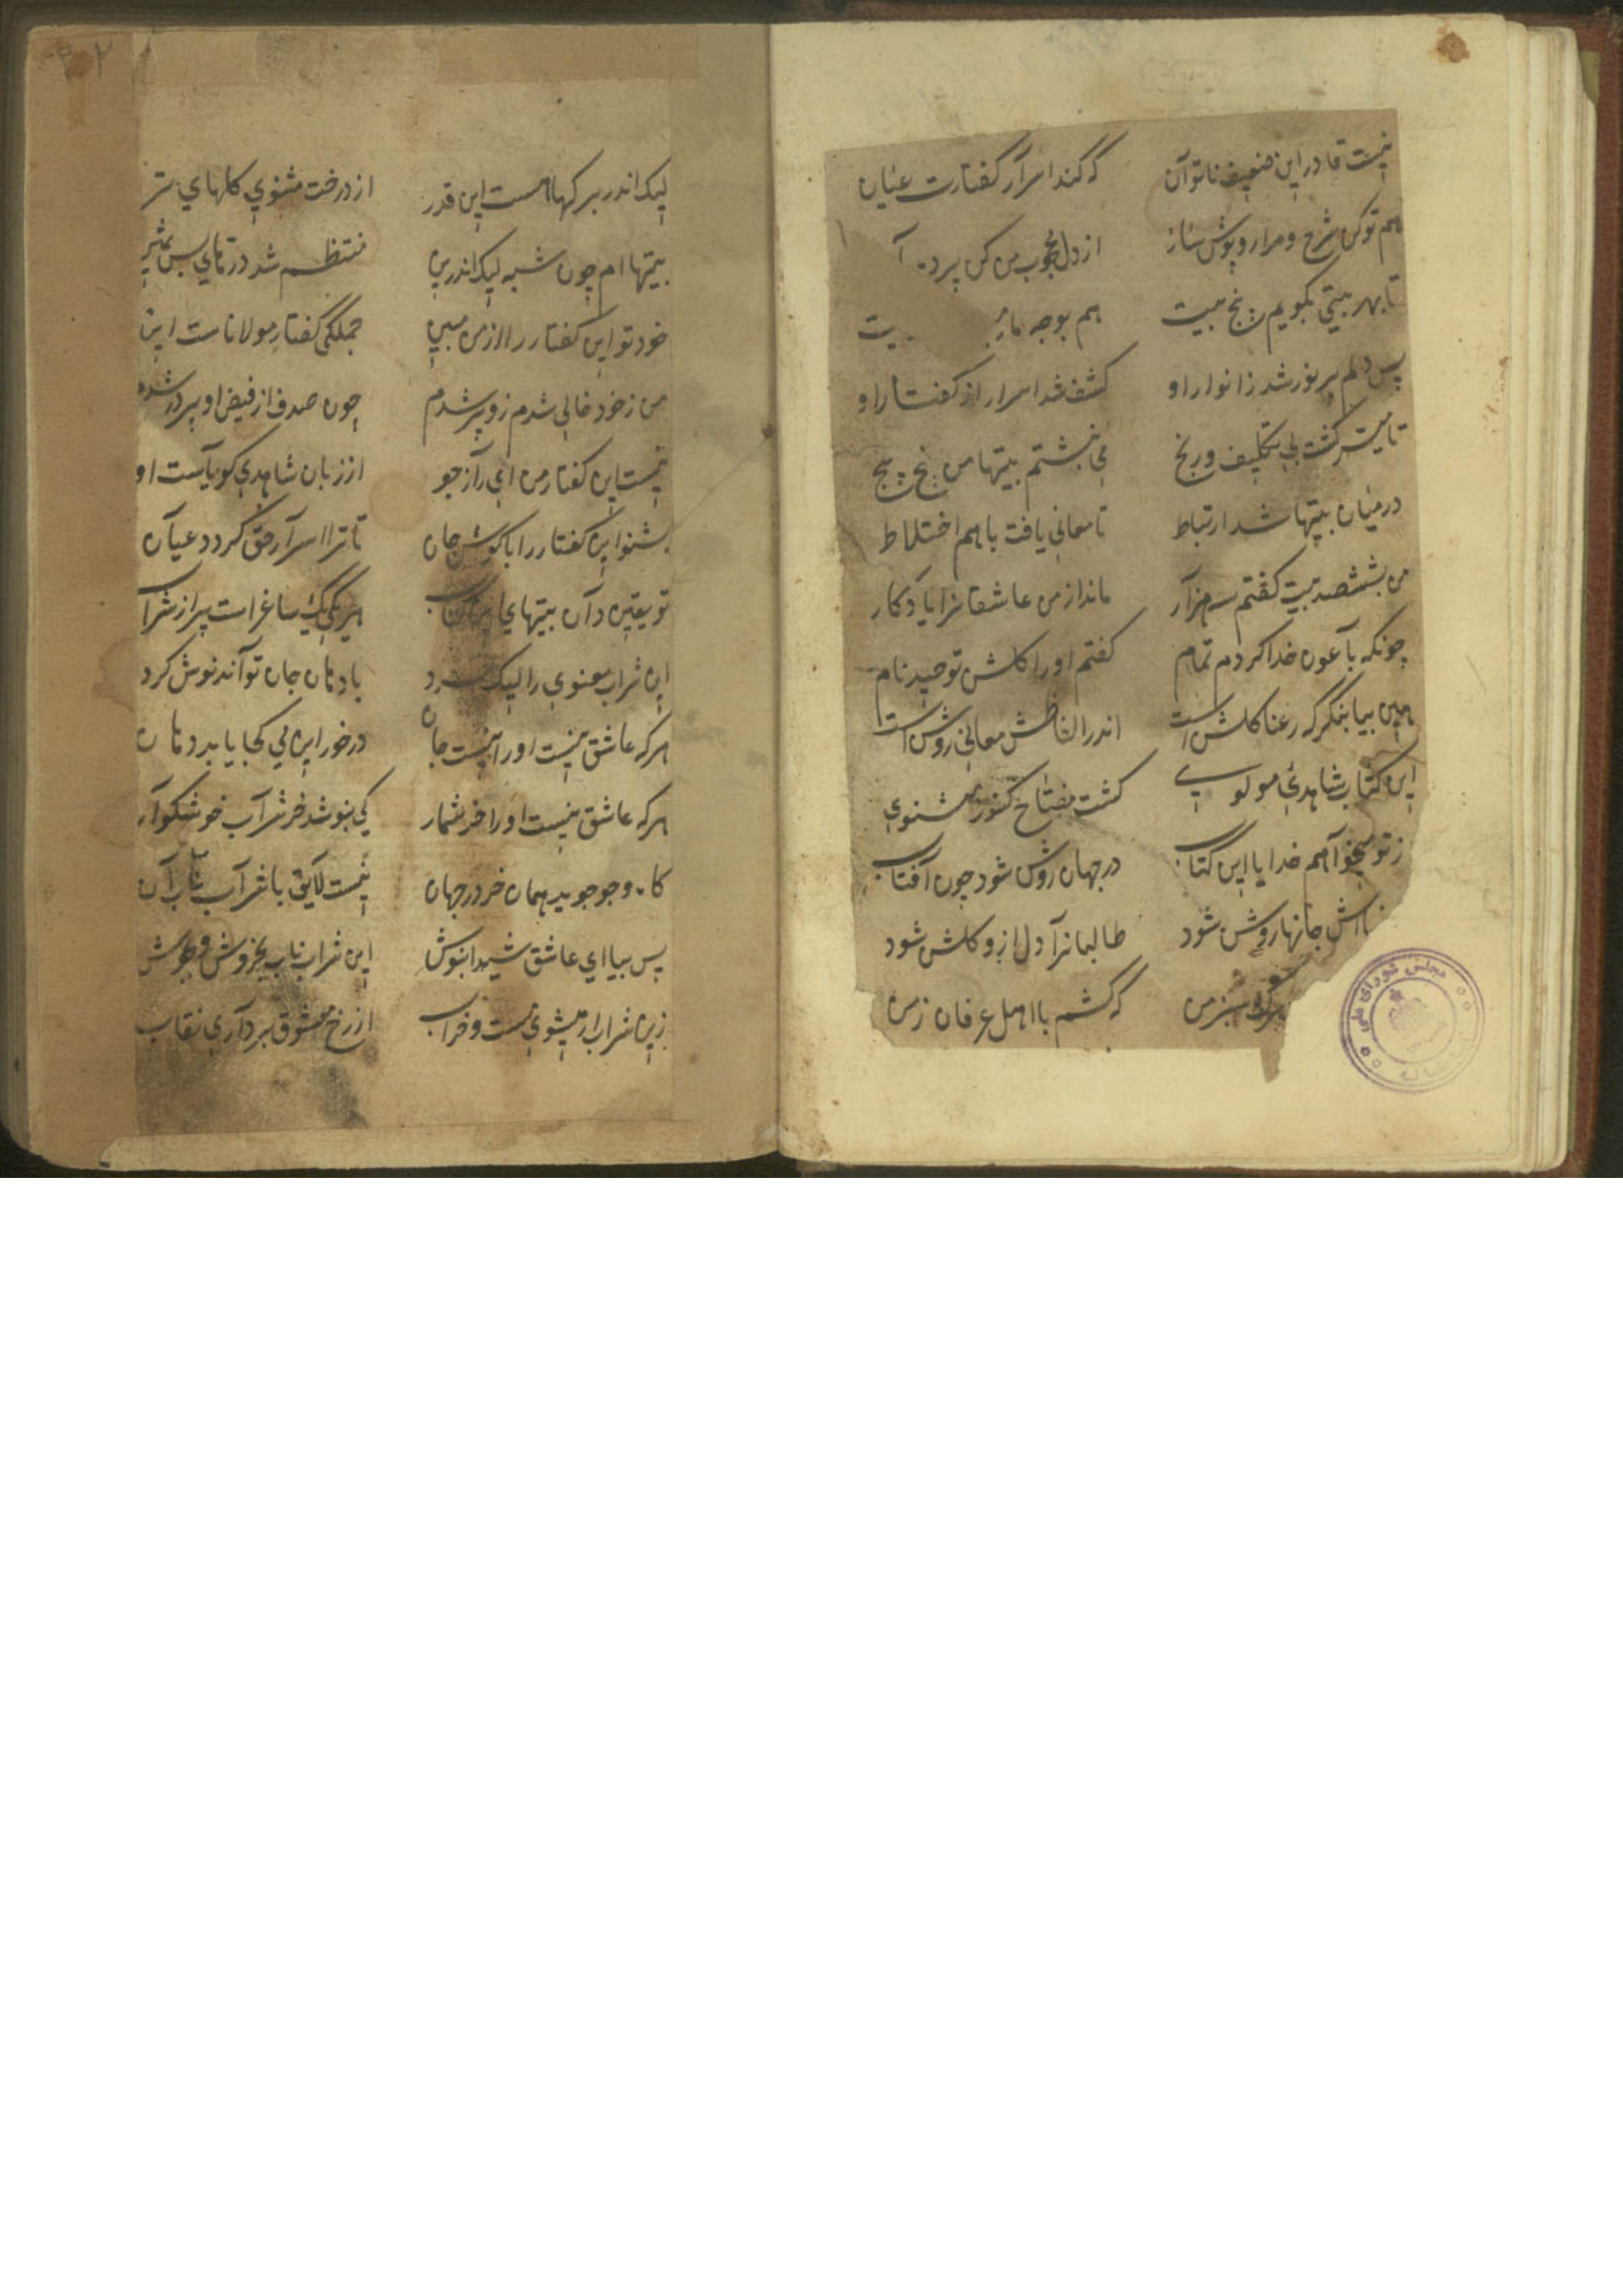 نیست قادر این ضعیف ناتوان که کند اسرار گفتارت عیان
هم تو کن شرح و مرا روپوش ساز از دل محجوب من کن پرده
تا بهر بیتی بگویم پنج بیت هم بوجه
پس دلم پر نور شد ز انوار او کشف شد اسرار از گفتار او
تا میسر گشت بی تکلیف و رنج می نبشتم بیتها من پنج پنج
در میان بیتها شد ارتباط تا معانی یافت با هم اختلاط
من بششصد بیت گفتم سه هزار ماند از من عاشقانرا یادکار
چونکه با عون خدا کردم تمام گفتم او را کلشن توحید نام
هین بیا بنگر که رعنا کلشن است اندر الفاظش معانی روشن است
این کتاب شاهدئ مولوی گشت مفتاح کنوز مثنوی
ز تو میخواهم خدایا این کتاب در جهان روشن شود چون آفتاب
جانها روشن شود طالبانرا دل ازو کلشن شود
سبز من که گشتم با اهل عرفان زمن
لیک اندر بر کهاهست این قدر از درخت مثنوی کلهای تر
بیتها ام چون شبه لیک اندرین منتظم شد درهای بس ثمین
خود تو این گفتار را از من مبین جملگی گفتار مولاناست این
من ز خود خالی شدم زو پر شدم چون صدف از فیض او پر در شدم
نیست این گفتار من ای راز جو از زبان شاهدی کویاست او
بشنو این گفتار را با گوش جان تا ترا اسرار حق گردد عیان
تو یقین دان بیتهای این کتاب هر یکی یک ساغر است پر از شراب
این شراب معنوی را لیک مرد با دهان جان تواند نوش کرد
هر که عاشق نیست او را نیست جان در خور این می کجا یابد دهان
هر که عاشق نیست او را خر شمار کی بنوشد خر شراب خوشکوار
کاه و جو جوید همان خر در جهان نیست لایق با شراب ناب آن
پس بیا ای عاشق شیدا بنوش این شراب ناب بخروش و بجوش
زین شراب ار میشوی مست و خراب از رخ معشوق برداری نقاب
مجلس شورای ملی